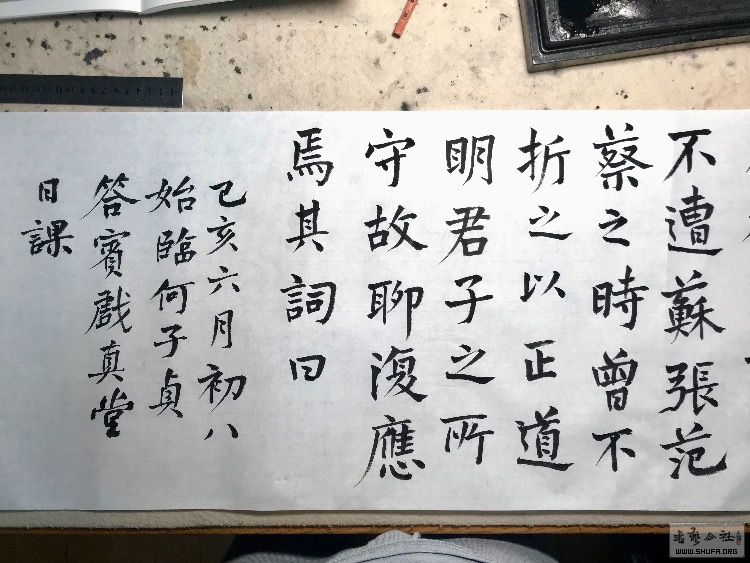 不遭蘇張范
蔡之時曾不
折之以正道
明君子之所
守故聊復應
焉其詞曰
己亥六月初八
始臨何子貞
答賓戲真堂
日課
書藝公社
WWW.SHUFA.ORG